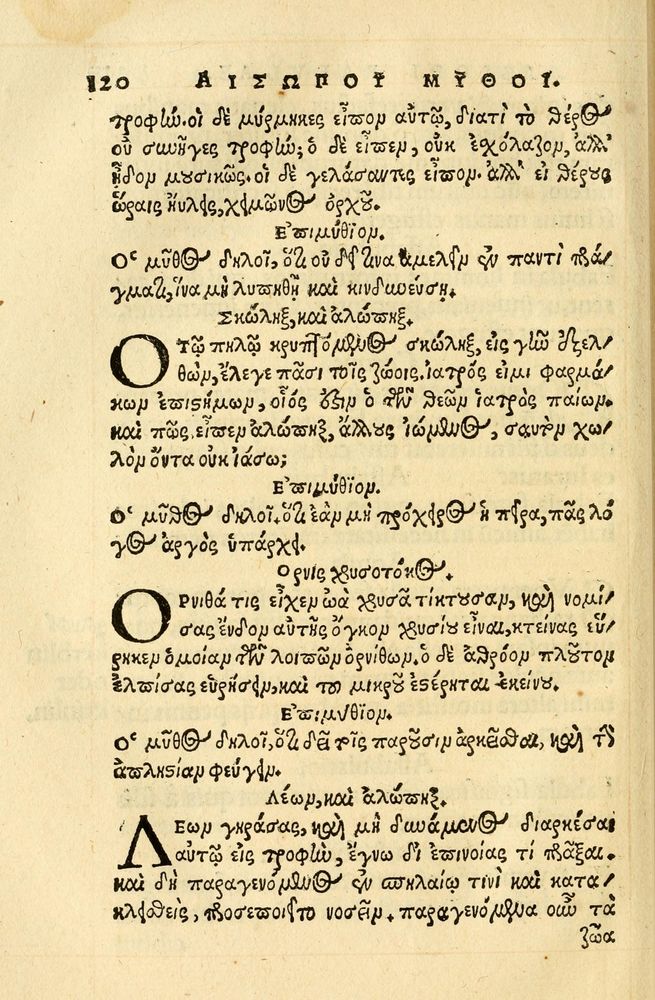 120 ΑΙΣΩΠΟΥ ΜΥΘΟΙ.
τροφήν. οἱ δὲ μύρμηκες εἶπον αὐτῷ, διατί τὸ θέρος
οὐ συνῆγες τροφήν; ὁ δὲ εἶπεν, οὐκ ἐχόλαζον, ἀλλ'
ᾖδον μουσικῶς. οἱ δὲ γελάσαντες εἶπον. ἀλλ' εἰ θέρους
ὥραις ηὔλεις, χειμῶνος ὀρχοῦ.
Ἐπιμύθιον.
Ὁ μῦθος δηλοῖ, ὅτι οὐ δεῖ τινα ἀμελεῖν ἐν παντὶ πρά/
γματι, ἵνα μὴ λυπηθῇ καὶ κινδυνεύσῃ.
Σκώληξ, καὶ ἀλώπηξ.
Ὁ τῷ πηλῷ κρυπτόμενος σκώληξ, εἰς γῆν ἐξελ/
θὼν, ἔλεγε πᾶσι τοῖς ζώοις. ἰατρός εἰμι φαρμά/
κων ἐπιστήμων, οἷός ἐστιν ὁ τῶν θεῶν ἰατρὸς παίων.
καὶ πῶς, εἶπεν ἀλώπηξ, ἄλλους ἰώμενος, σαυτὸν χω/
λὸν ὄντα οὐκ ἰάσω;
Ἐπιμύθιον.
Ὁ μῦθος δηλοῖ. ὅτι ἐὰν μὴ πρόχειρος ἡ πεῖρα, πᾶς λό
γος ἀργὸς ὑπάρχει.
Ὄρνις χρυσοτόκος.
ΟΡΝΙΘΑ τις εἶχεν ὠὰ χρυσᾶ τίκτουσαν, καὶ νομί/
σας ἔνδον αὐτῆς ὄγκον χρυσίου εἶναι, κτείνας εὕ/
ρηκεν ὁμοίαν τῶν λοιπῶν ὀρνίθων. ὁ δὲ ἀθρόον πλοῦτον
ἐλπίσας εὑρήσειν, καὶ τοῦ μικροῦ ἐστέρηται ἐκείνου.
Ἐπιμύθιον.
Ὁ μῦθος δηλοῖ, ὅτι δεῖ τοῖς παροῦσιν ἀρκεῖσθαι, καὶ τὴν
ἀπληστίαν φεύγειν.
Λέων, καὶ ἀλώπηξ.
ΛΕων γηράσας, καὶ μὴ δυνάμενος διαρκέσαι
αὑτῷ εἰς τροφὴν, ἔγνω δι' ἐπινοίας τί πρᾶξαι.
καὶ δὴ παραγενόμενος ἐν σπηλαίῳ τινὶ καὶ κατα/
κλειθεὶς, προσεποιεῖτο νοσεῖν. παραγενόμενα οὖν τὰ
ζῶα